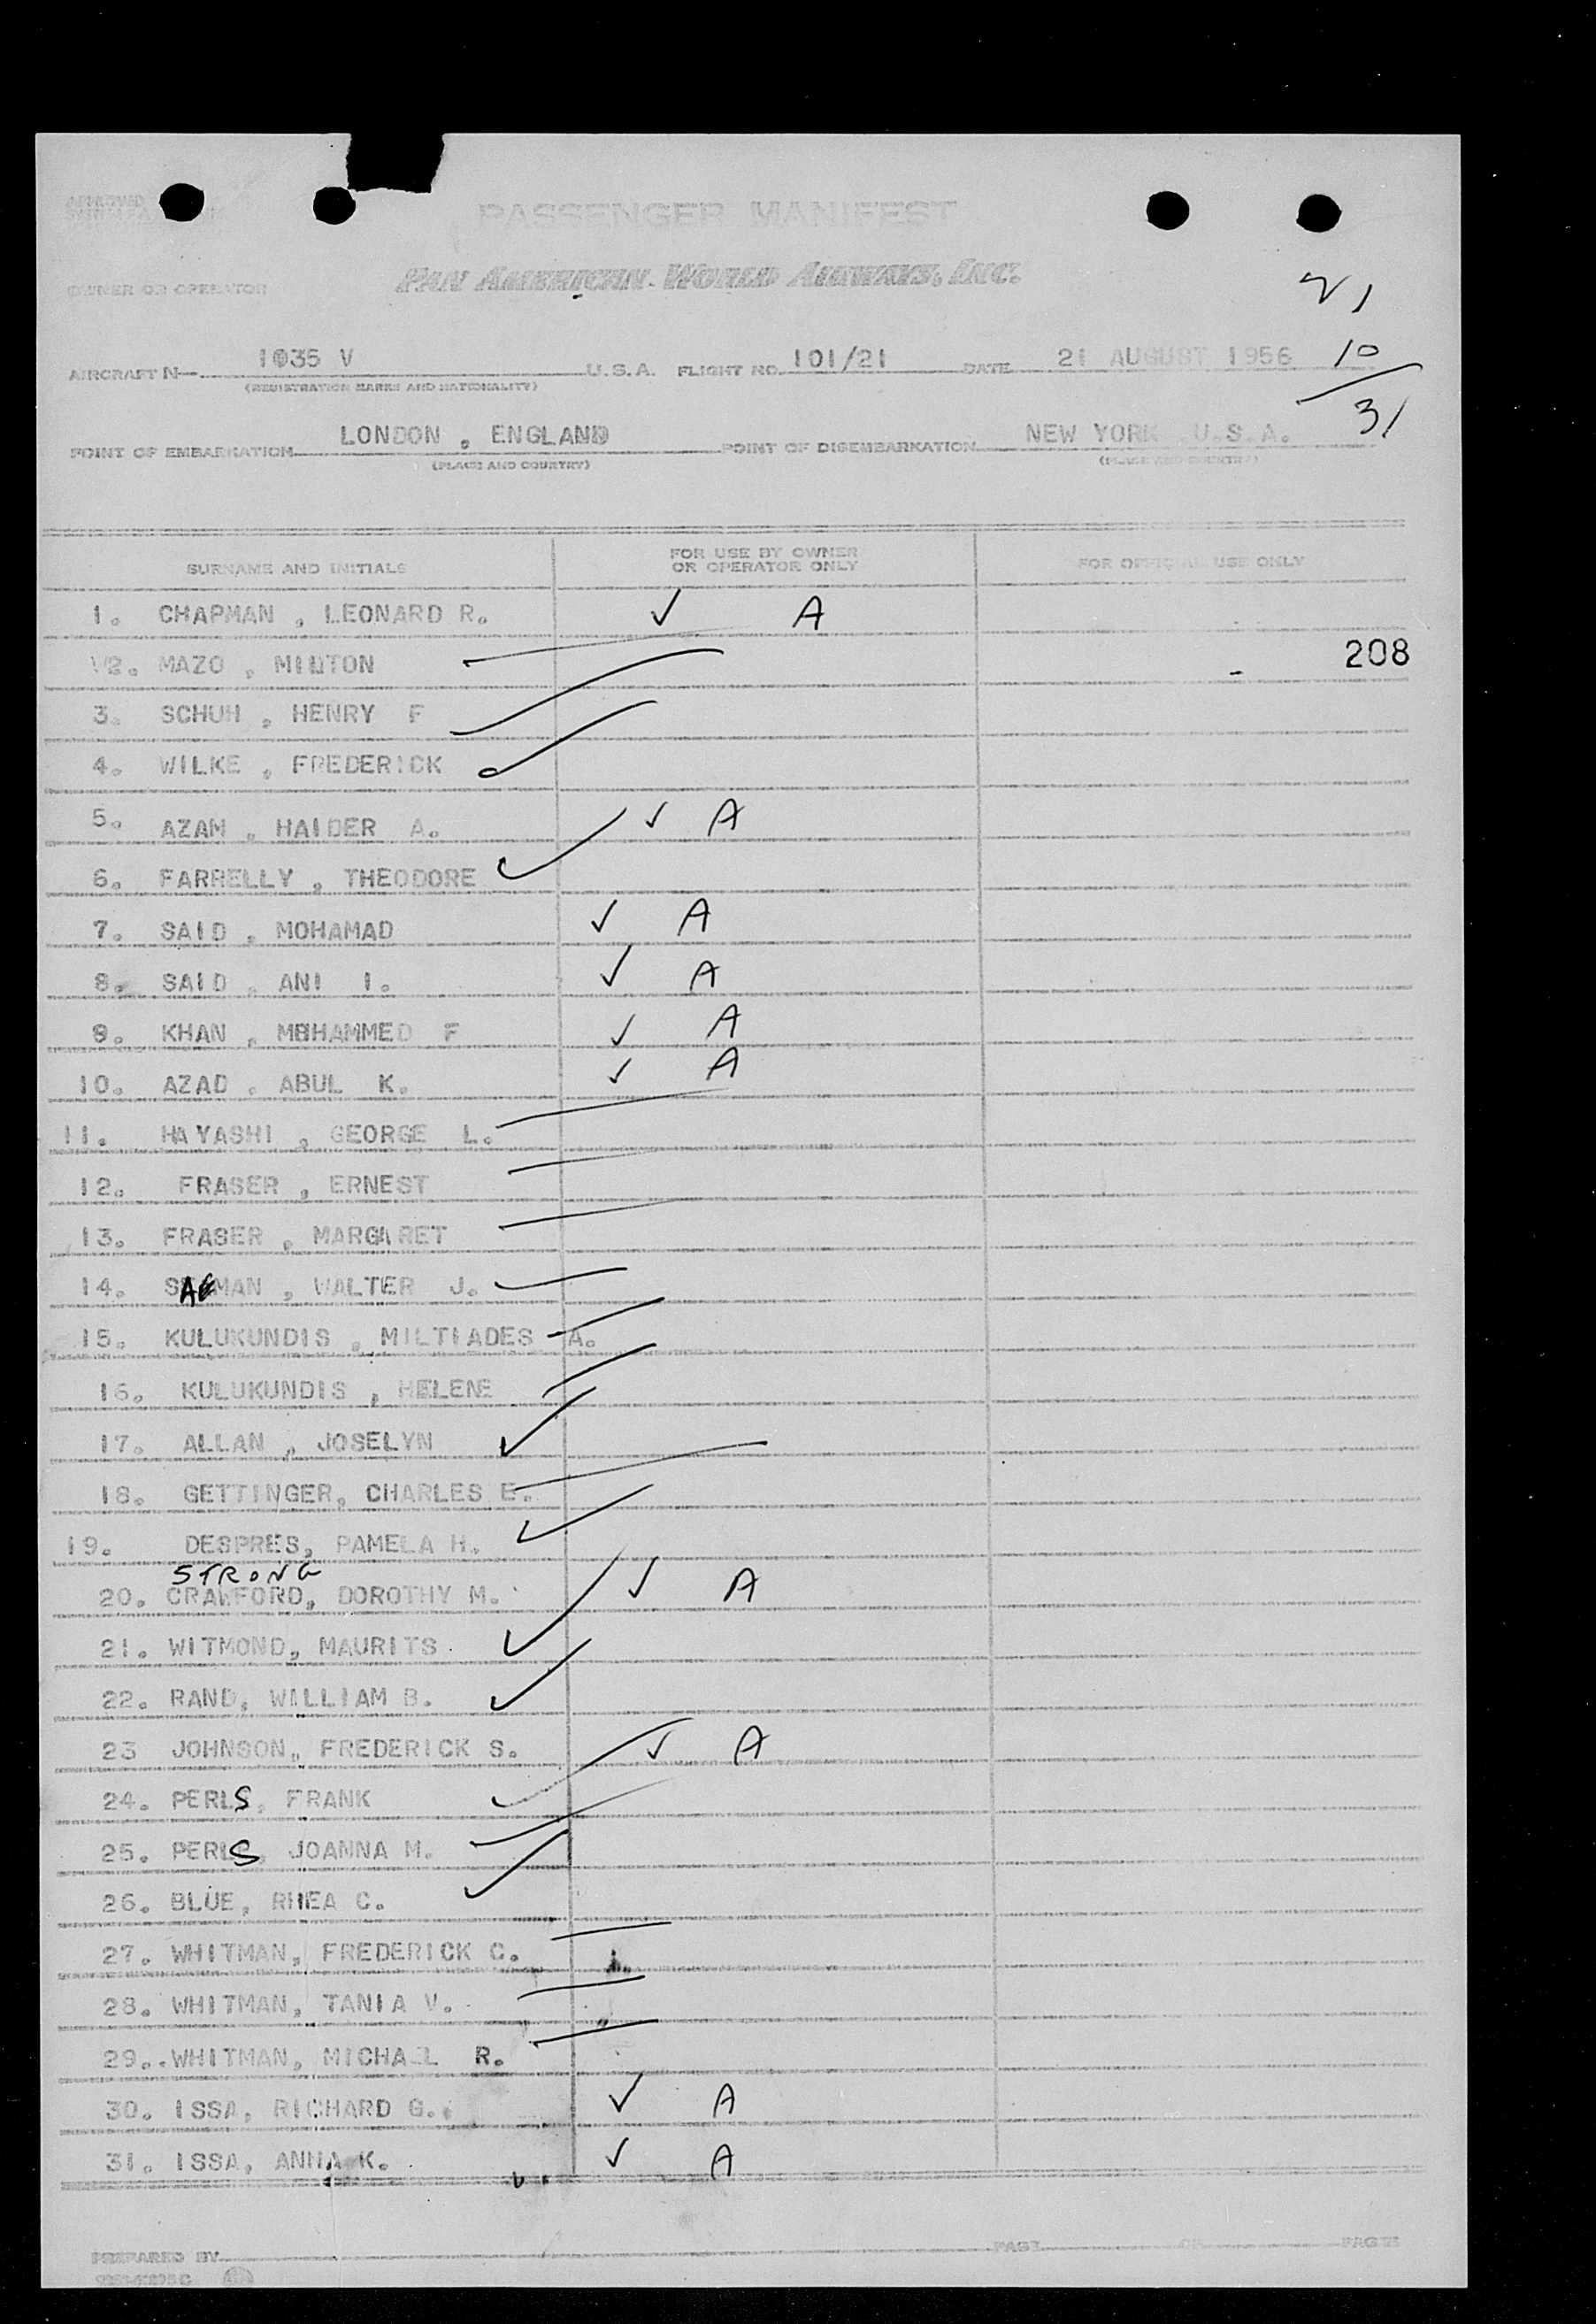 APPROVED
PASSENGER MANIFEST
OWNER OR OPERATOR PAN AMERICAN WORLD AIRWAYS, INC.
21
AIRCRAFT N 1035 V U.S.A. FLIGHT NO. 101/21 DATE 21 AUGUST 1956 10
(REGISTRATION MARKS AND NATIONALITY)
31
POINT OF EMBARKATION LONDON , ENGLAND POINT OF DISEMBARKATION NEW YORK U.S.A.
(PLACE AND COUNTRY) (PLACE AND COUNTRY)
SURNAME AND INITIALS FOR USE BY OWNER OR OPERATOR ONLY FOR OFFICIAL USE ONLY
1. CHAPMAN , LEONARD R. ✓ A
2. MAZO , MILTON 208
3. SCHUH , HENRY F
4. WILKE , FREDERICK
5. AZAM , HAIDER A. ✓ A
6. FARRELLY , THEODORE ✓
7. SAID , MOHAMAD ✓ A
8. SAID , ANI I. ✓ A
9. KHAN , MOHAMMED F ✓ A
10. AZAD , ABUL K. ✓ A
11. HAYASHI , GEORGE L.
12. FRASER , ERNEST
13. FRASER , MARGARET
14. SAEMAN , WALTER J.
15. KULUKUNDIS , MILTIADES A.
16. KULUKUNDIS , HELENE
17. ALLAN , JOSELYN ✓
18. GETTINGER, CHARLES E.
19. DESPRES, PAMELA H. ✓
STRONG
20. CRAWFORD, DOROTHY M. ✓ A
21. WITMOND, MAURITS ✓
22. RAND, WILLIAM B. ✓
23 JOHNSON, FREDERICK S. ✓ A
24. PERLS, FRANK ✓
25. PERLS, JOANNA M.
26. BLUE, RHEA C. ✓
27. WHITMAN, FREDERICK C.
28. WHITMAN, TANIA V.
29. WHITMAN, MICHAEL R.
30. ISSA, RICHARD G. ✓ A
31. ISSA, ANNA K. ✓ A
PREPARED BY PAGE OF PAGES